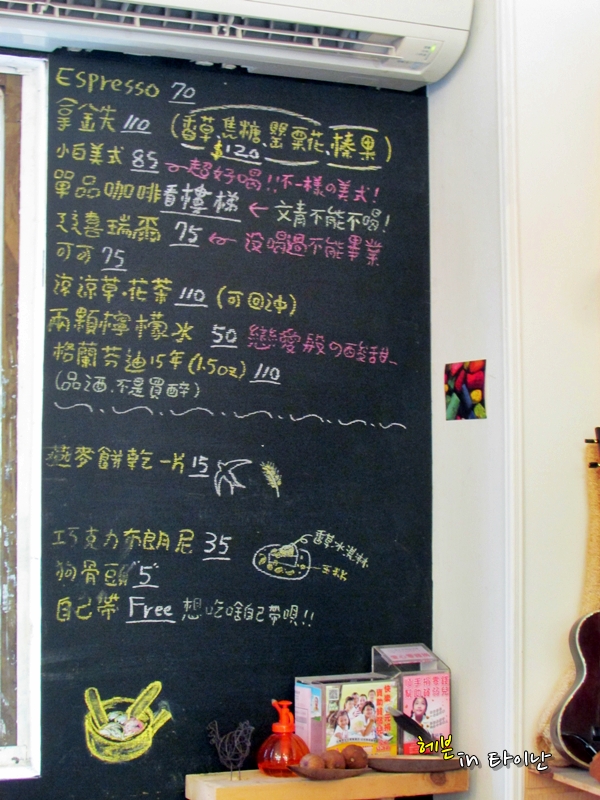 Espresso 70
拿鐵 110 (香草.焦糖.罌粟花.榛果)
$120
小白美式 85 超好喝!!不一樣の美式!
單品咖啡看樓梯 ← 文青不能不喝!
喜瑞爾 75 ← 沒喝過不能畢業
可可 75
涼涼草.花茶 110 (可回沖)
兩顆檸檬冰 50 戀愛般の酸甜
格蘭芬迪15年(1.5oz) 110
(品酒.不是買醉)
燕麥餅乾 一片 15
巧克力布朗尼 35
香草冰淇淋
狗骨頭 5
自己帶 Free 想吃啥自己帶唄!!
헤븐 in 타이난